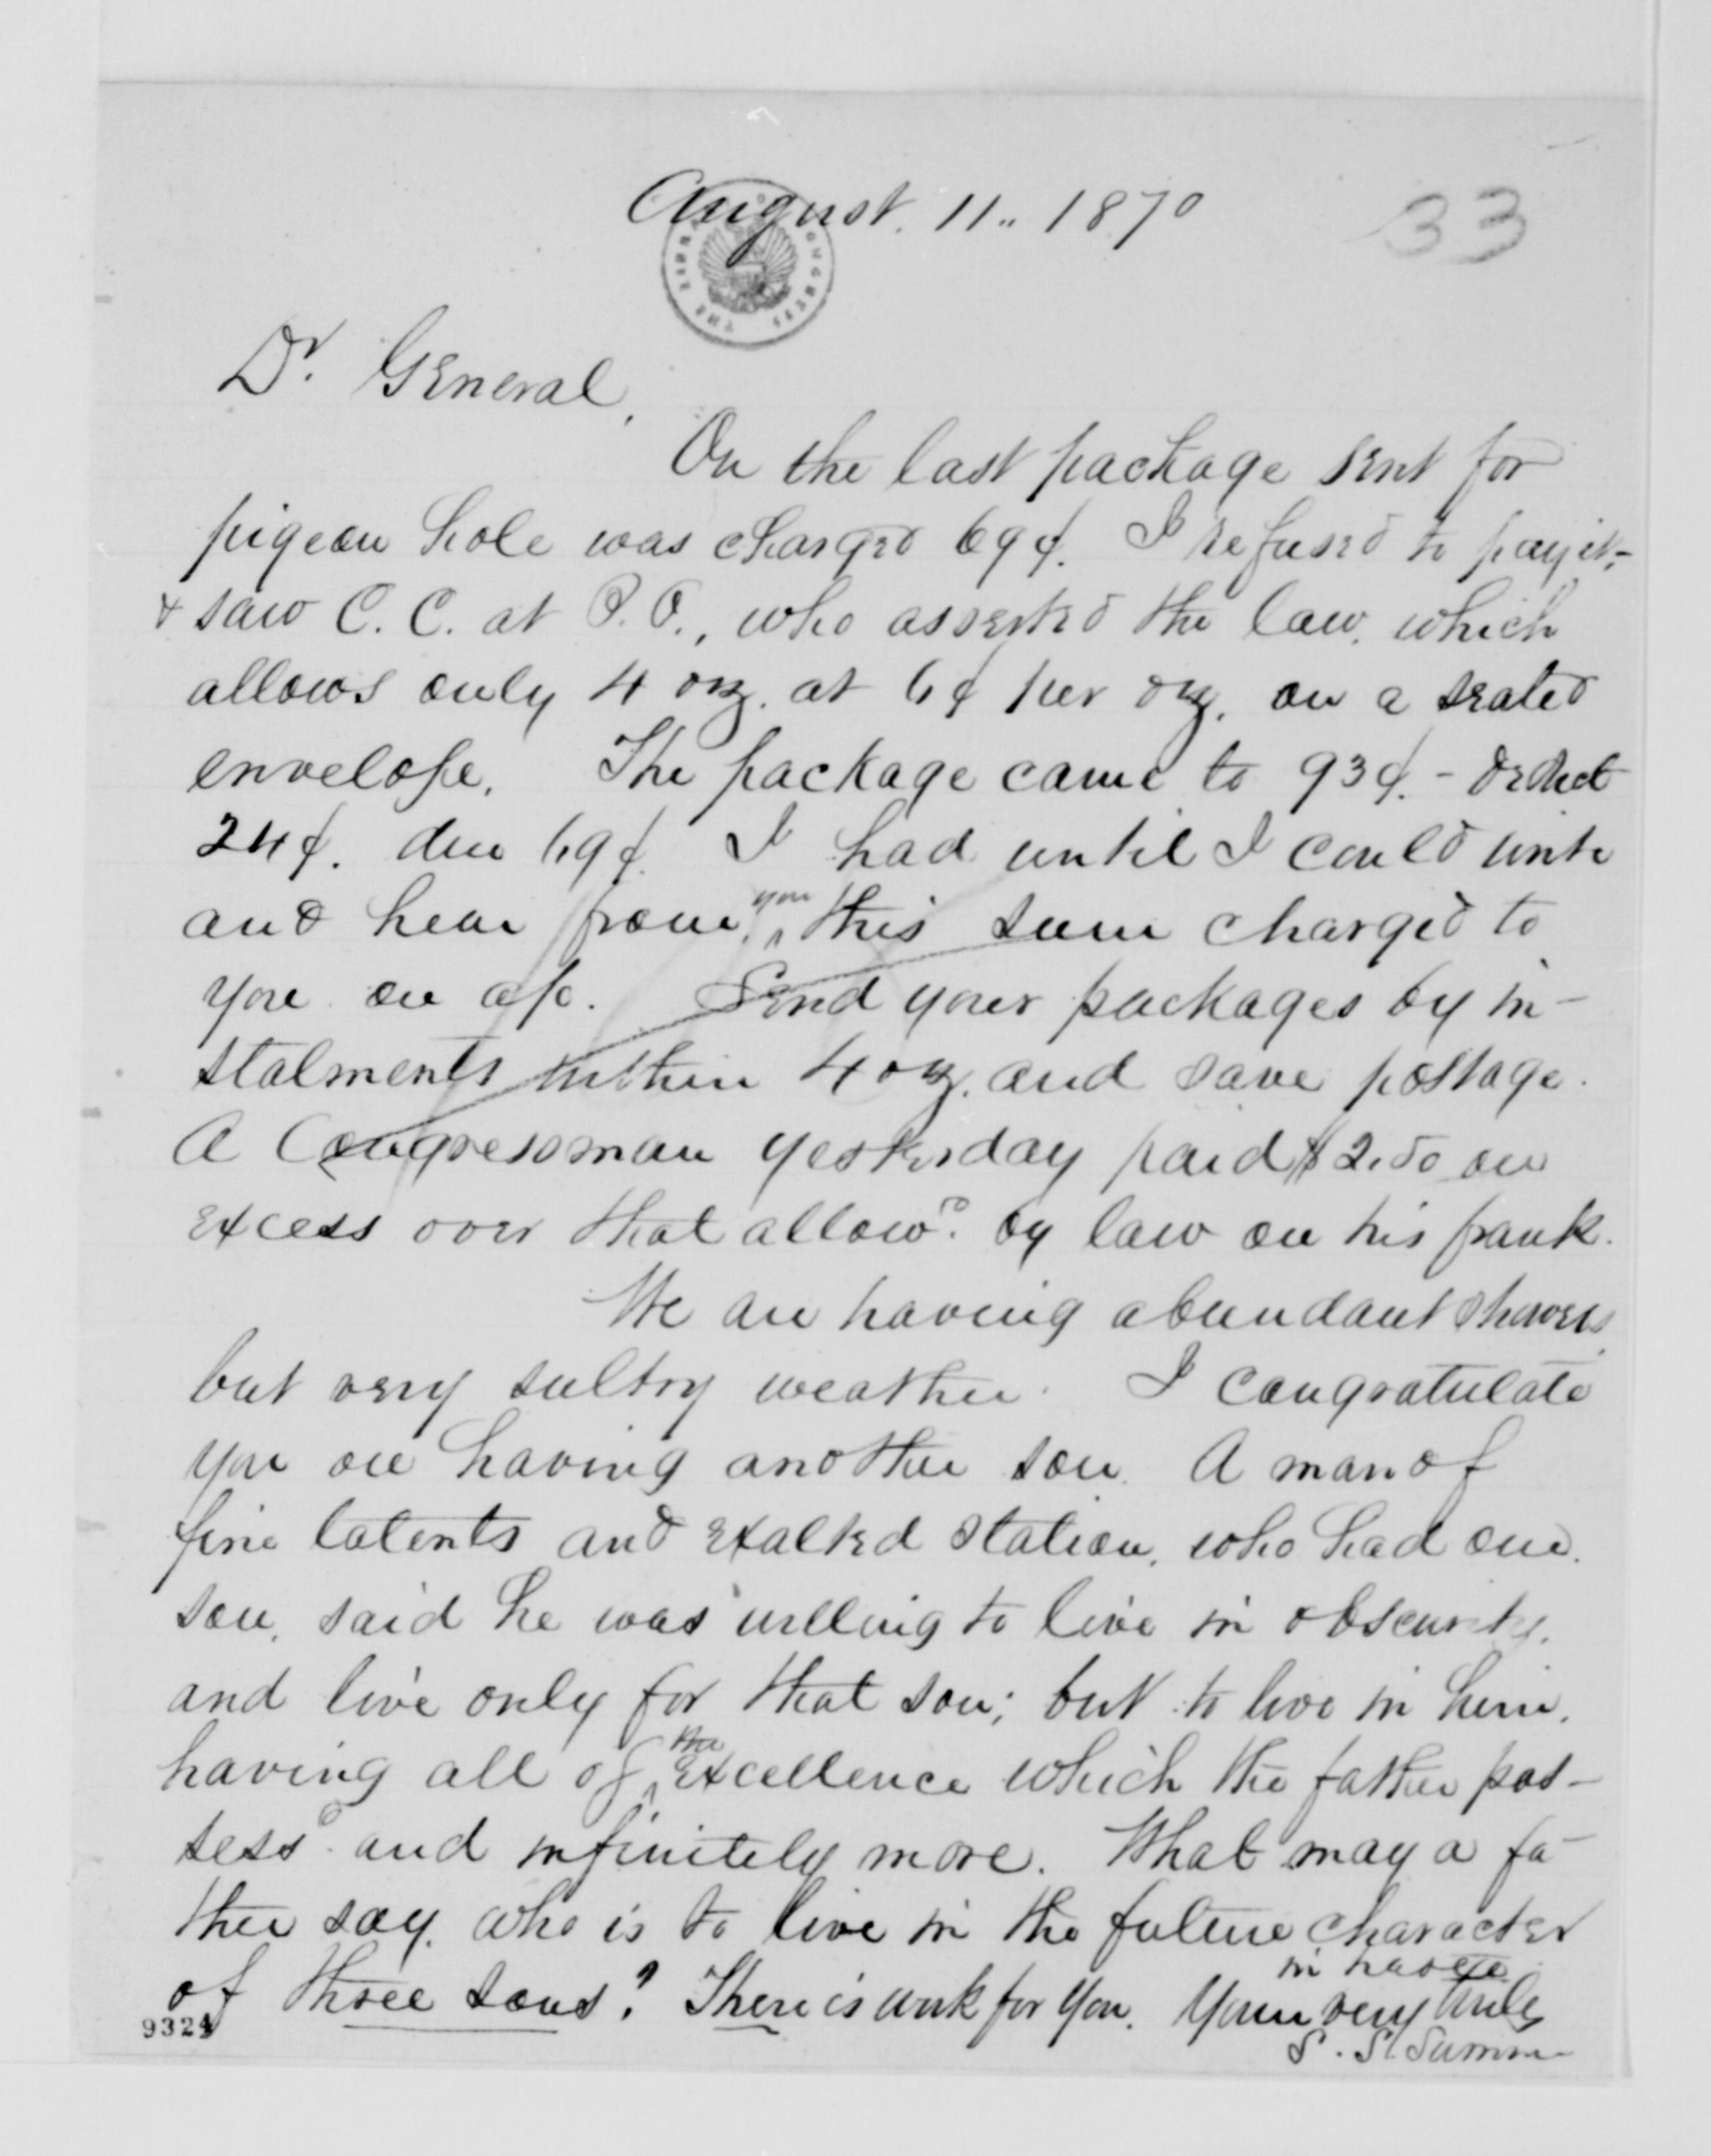 August. 11.. 1870
33
THE LIBRARY CONGRESS
Dr. General,
On the last package sent for
pigeon hole was charged 69¢. I refused to pay it,-
& saw C. C. at P.O., who asserted the law, which
allows only 4 oz. at 6¢ per oz. on a sealed
envelope. The package came to 93¢. - deduct
24¢. due 69¢. I had until I could write
and hear from you, this sum charged to
you on a/c. Send your packages by in-
stalments within 4 oz. and save postage.
A Congressman yesterday paid $2.50 on
excess over that allowd. by law on his frank.
We are having abundant showers
but very sultry weather. I congratulate
you on having another son. A man of
fine talents and exalted station, who had one
son, said he was willing to live in obscurity,
and live only for that son; but to live in him,
having all of the excellence which the father pos-
sessd and infinitely more. What may a fa-
ther say, who is to live in the future character
of three sons? There is work for you. Yours very truly
in haste
S. S.
9324